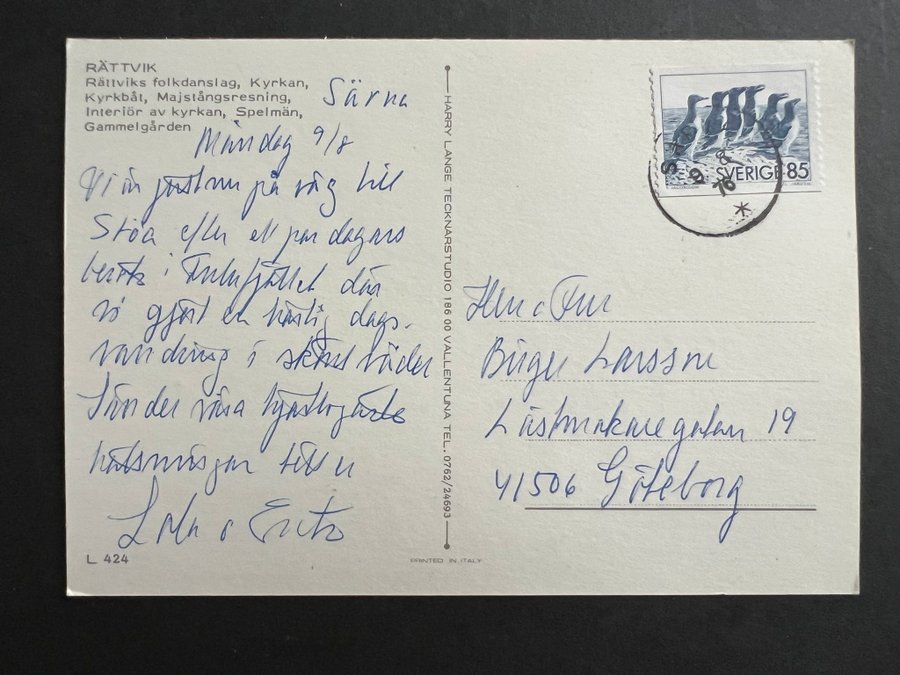 RÄTTVIK
Rättviks folkdanslag, Kyrkan,
Kyrkbåt, Majstångsresning,
Interiör av kyrkan, Spelmän,
Gammelgården
Särna
Måndag 9/8
Vi är just nu på väg till
Stöa efter ett par dagars
besök i Fulufjället där
vi gjort en härlig dags-
vandring i skönt väder
Sänder våra hjärtligaste
hälsningar till er
L 424
HARRY LANGE TECKNARSTUDIO 186 00 VALLENTUNA TEL. 0762/24693
PRINTED IN ITALY
SVERIGE 85
9 8
76
Herr o Fru
Birger Larsson
Lästmakaregatan 19
41506 Göteborg